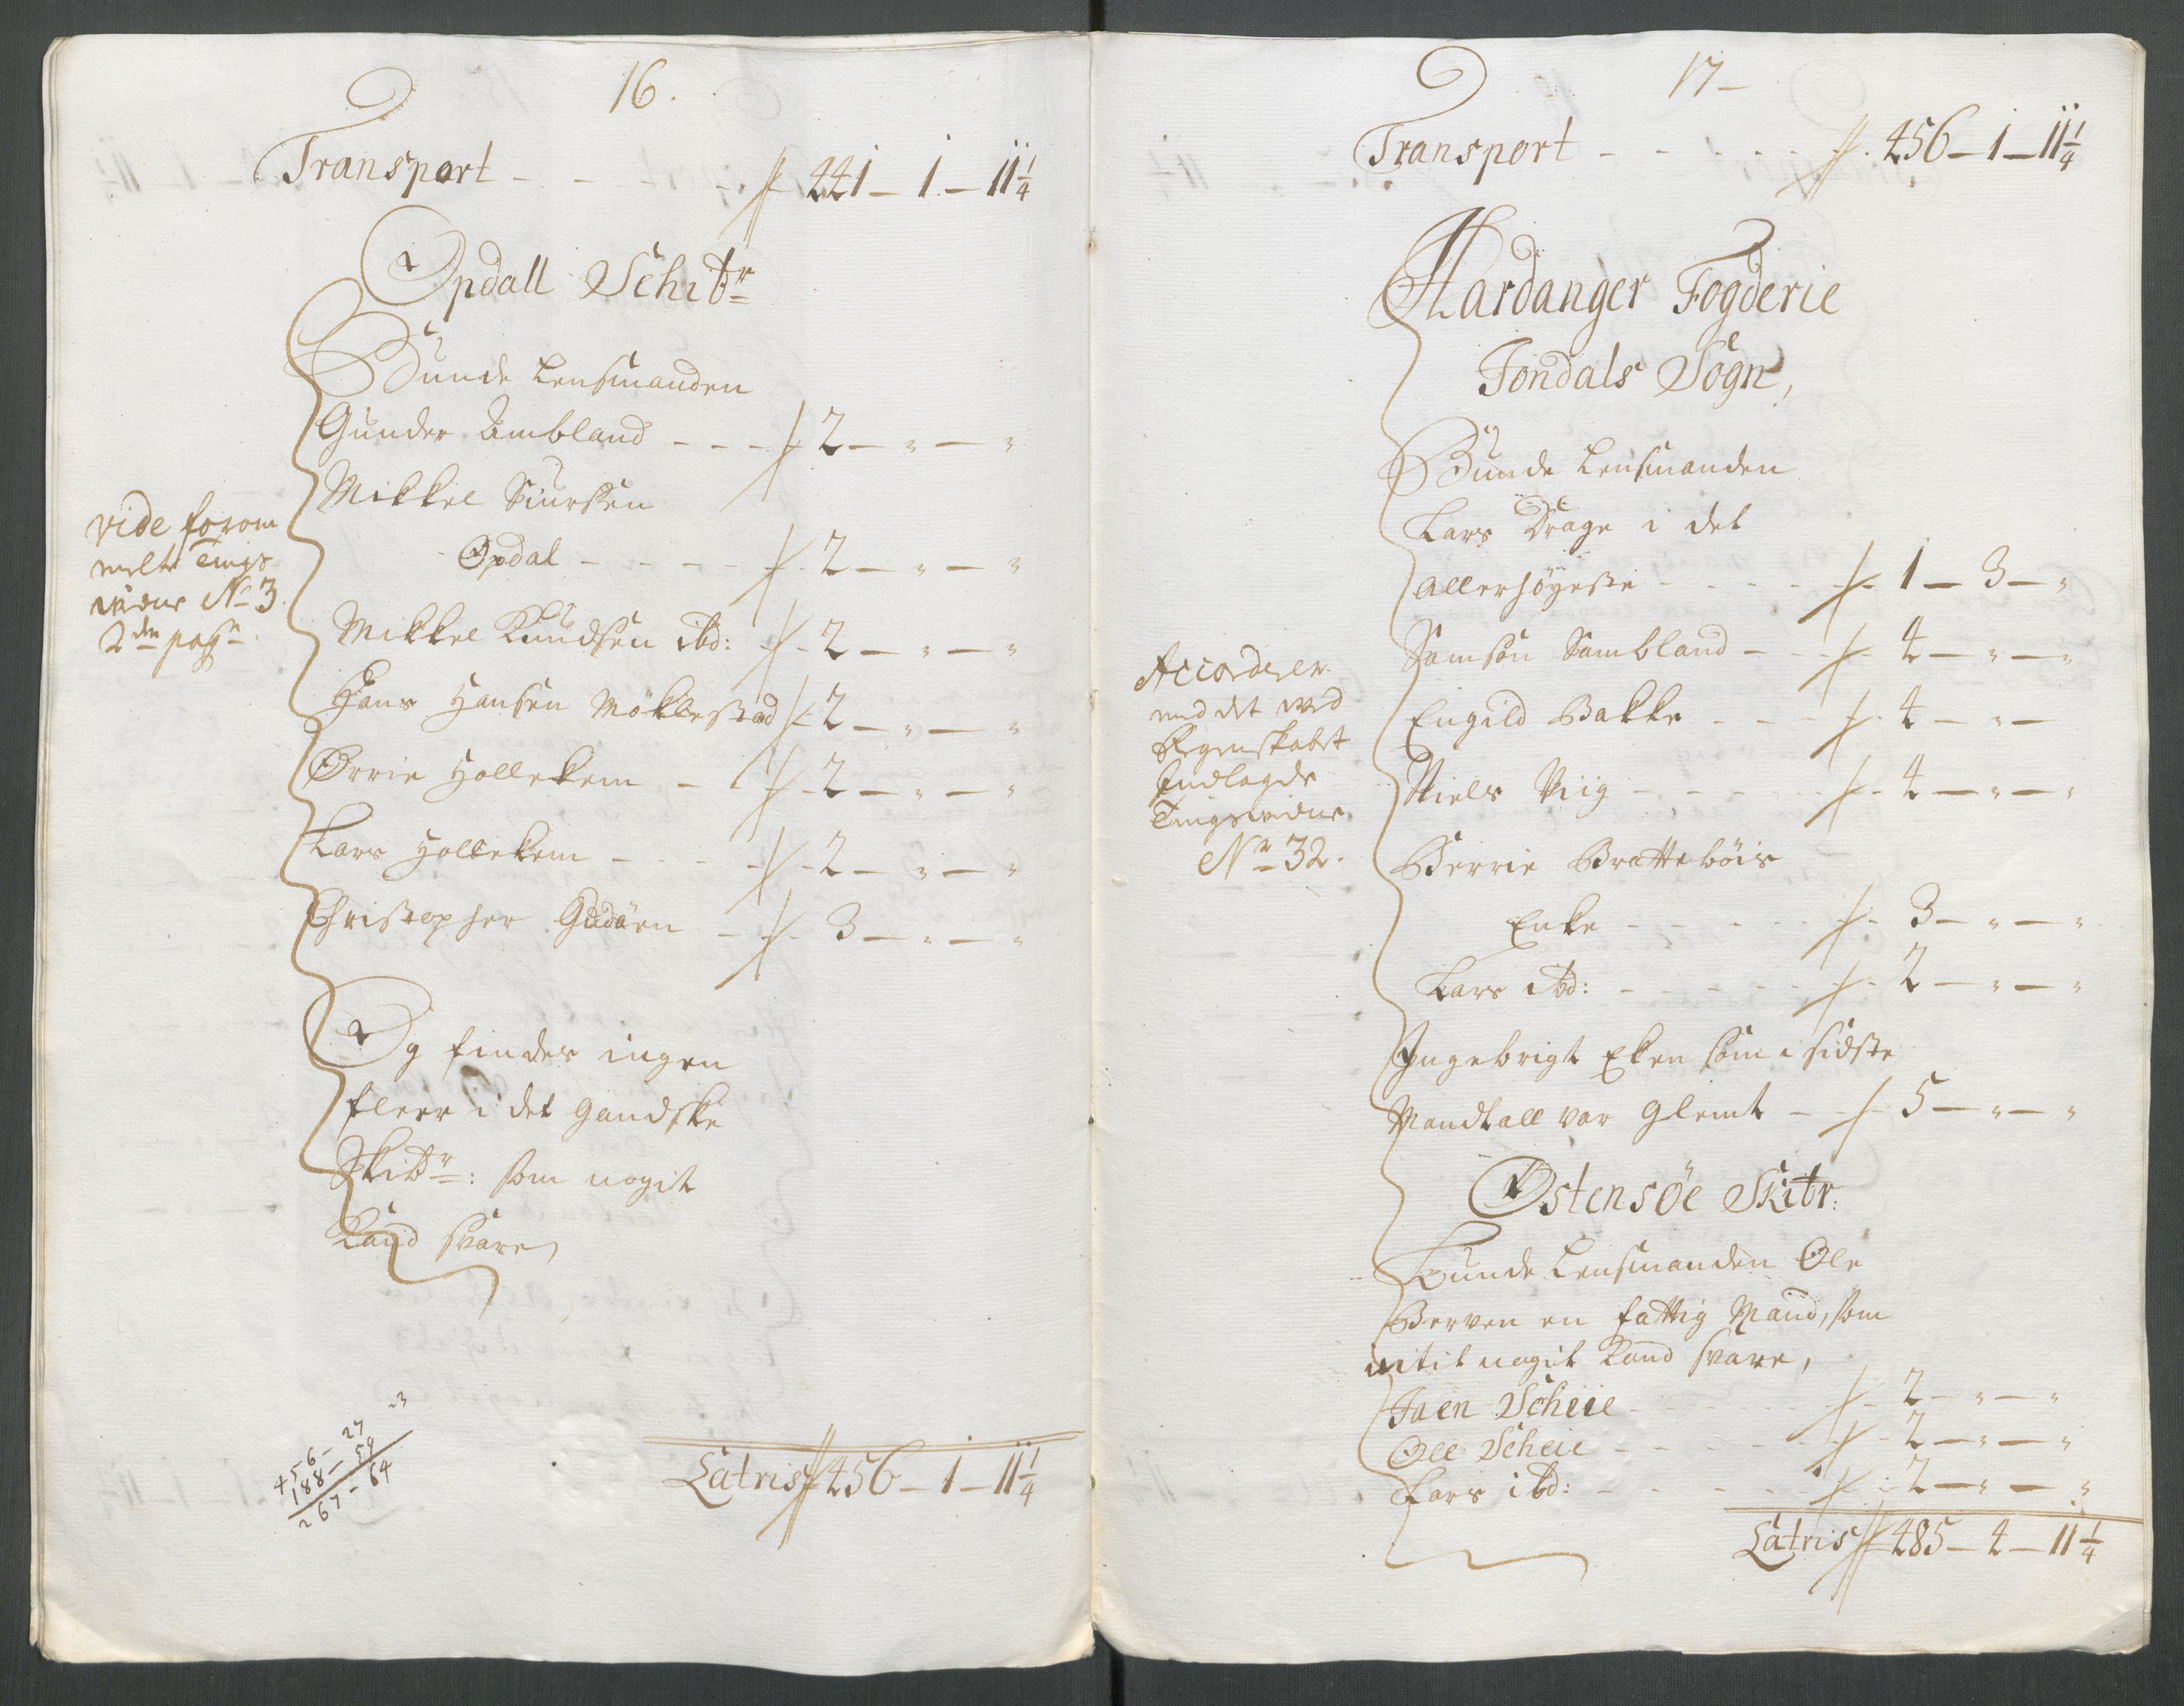 16.
Transport - - - - 441 - 1 - 11 1/4
Opdall Schibr
Bunde Lensmanden
Gunder Ambland - - - 2 - " - "
Mikkel Siursen
Opdal - - - - 2 - " - "
Mikkel Knudsen ibd: - 2 - " - "
Hans Hansen Møklestad 2 - " - "
Ørrie Hollekem - - 2 - " - "
Lars Hollekem - - - 2 - " - "
Christopher Gudøen - - 3 - " - "
vide forom
melte Tings
vidne No 3.
2den post
Og findes ingen
fleer i det gandske
Skibr: som nogit
kand svare,
456 - 27
188 - 59
267 - 64
Latris 456 - 1 - 11 1/4
17 -
Transport - - - - - 456 - 1 - 11 1/4
Hardanger Fogderie
Jondals Sogn,
Bunde Lensmanden
Lars Drage i det
allerhøyeste - - - - 1 - 3 - "
Samson Sambland - - 4 - " - "
Engild Bakke - - - 4 - " -
Niels Viig - - - - 4 - " - "
Berrie Brattebøis
Enke - - - - - 3 - " - "
Lars ibd: - - - - - 2 - " - "
Ingebrigt Eken som i sidste
Mandtall var glemt - - 5 - " - "
Accorderer
med det ved
Regenskabet
Indlagde
Tingsvidne
No 32.
Østensøe Skibr:
Bunde Lensmanden Ole
Berven en fattig Mand, som
intit nogit kand svare,
Joen Scheie - - - - 2 - " - "
Ole Scheie - - - - 2 - " - "
Lars ibd: - - - - - 2 - " - "
Latris 485 - 4 - 11 1/4